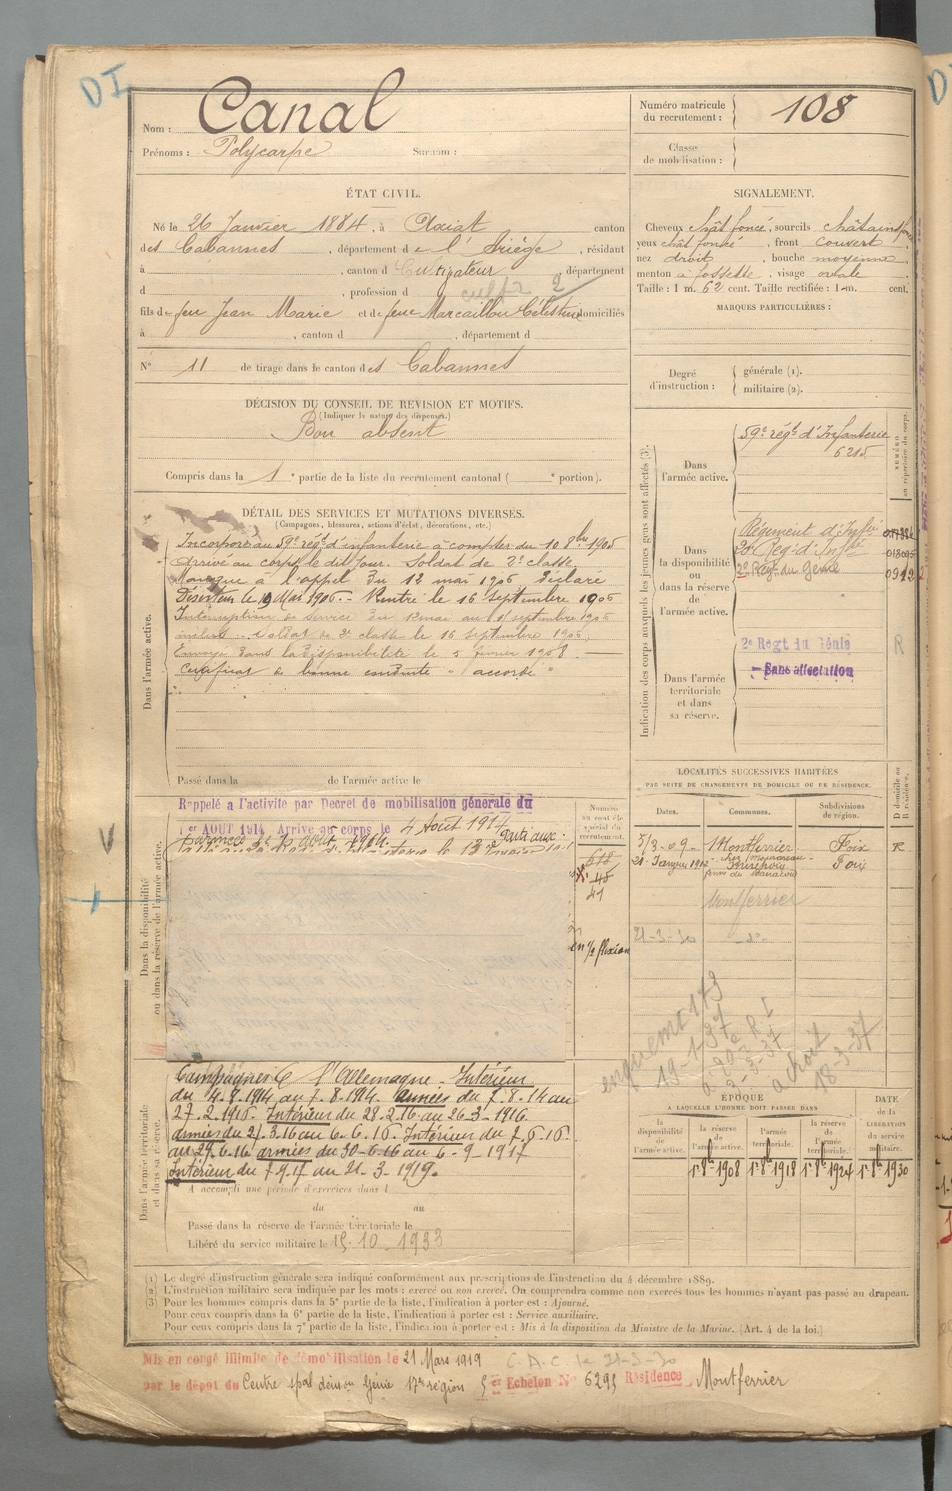 DI
Nom : Canal
Prénoms : Polycarpe Surnom :
Numéro matricule
du recrutement : 108
Classe
de mobilisation :
ÉTAT CIVIL.
Né le 26 Janvier 1884, à Axiat canton
des Cabannes, département de l'Ariège, résidant
à , canton d département
d , profession d Cultivateur
2
fils de feu Jean Marie et de feue Marcaillou Célestine domiciliés
à , canton d , département d
N° 11 de tirage dans le canton des Cabannes
SIGNALEMENT.
Cheveux chât foncé, sourcils châtains
yeux chât foncé, front couvert
nez droit, bouche moyenne,
menton à fossette, visage ovale
Taille : 1 m. 62 cent. Taille rectifiée : 1 m. cent.
MARQUES PARTICULIÈRES :
Degré
d'instruction :
générale (1).
militaire (2).
DÉCISION DU CONSEIL DE REVISION ET MOTIFS.
(Indiquer la nature des dispenses.)
Bon absent
Compris dans la 1e partie de la liste du recrutement cantonal ( e portion).
DÉTAIL DES SERVICES ET MUTATIONS DIVERSES.
(Campagnes, blessures, actions d'éclat, décorations, etc.)
Dans l'armée active.
Incorporé au 59e régt d'infanterie à compter du 10 8bre 1905
Arrivé au corps le dit jour. Soldat de 2e classe
Manque à l'appel du 12 mai 1906 Déclaré
Déserteur le 19 Mai 1906. - Rentré le 16 Septembre 1906
Interruption de service du 12 mai au septembre 1906
Soldat de 2e classe le 16 septembre 1906.
Envoyé dans la Disponibilité le 5 février 1908.
Certificat de bonne conduite " accordé "
Passé dans la de l'armée active le
Indication des corps auxquels les jeunes gens sont affectés (3).
NUMÉRO
au répertoire du corps.
Dans
l'armée active.
59e régt d'Infanterie
6215
Dans
la disponibilité
ou dans
la réserve
de
l'armée active.
Régiment d'Infrie
Reg. d'Inf
2e Régt du Génie
Dans l'armée
territoriale
et dans
sa réserve.
2e Regt du Génie
R
- Sans affectation
Dans la disponibilité
ou dans la réserve de l'armée active.
Rappelé a l'activite par Decret de mobilisation générale du
1er AOUT 1914. Arrive au corps le 4 Août 1914
Numéro
au contrôle
spécial du
recrutement.
41
LOCALITÉS SUCCESSIVES HABITÉES
PAR SUITE DE CHANGEMENTS DE DOMICILE OU DE RÉSIDENCE.
D domicile ou
R résidence.
Dates.
Communes.
Subdivisions
de région.
5/3-09- Montferrier Foix R
Foix
Montferrier
21-3-30 - do -
19-1-37
18-3-37
Dans l'armée territoriale
et dans sa réserve.
Campagne C l'Allemagne. Intérieur
du 4.8.1914 au 7.8.1914. Armées du 7.8.14 au
27.2.1916. Intérieur du 28.2.16 au 26.3.1916.
armées du 27.3.16 au 6.6.16. Intérieur du 7.6.16.
au 29.6.16 armées du 30-6-16 au 6-9-1917
Intérieur du 7.9.17 au 21.3.1919.
A accompli une période d'exercices dans l
du au
Passé dans la réserve de l'armée territoriale le
Libéré du service militaire le 15-10-1933
ÉPOQUE
A LAQUELLE L'HOMME DOIT PASSER DANS
DATE
de la
LIBÉRATION
du service
militaire.
la
disponibilité
de
l'armée active.
la réserve
de
l'armée active.
l'armée
territoriale.
la réserve
de
l'armée
territoriale.
1er 8bre 1908 1er 8bre 1918 1er 8bre 1924 1er 8bre 1930
(1) Le degré d'instruction générale sera indiqué conformément aux prescriptions de l'instruction du 4 décembre 1889.
(2) L'instruction militaire sera indiquée par les mots : exercé ou non exercé. On comprendra comme non exercés tous les hommes n'ayant pas passé au drapeau.
(3) Pour les hommes compris dans la 5e partie de la liste, l'indication à porter est : Ajourné.
Pour ceux compris dans la 6e partie de la liste, l'indication à porter est : Service auxiliaire.
Pour ceux compris dans la 7e partie de la liste, l'indication à porter est : Mis à la disposition du Ministre de la Marine. (Art. 4 de la loi.)
Mis en congé illimité de démobilisation le 21 Mars 1919 C.A.C. le 21-3-30
par le dépôt du Centre Génie 17e région Echelon N° 6295 Résidence Montferrier